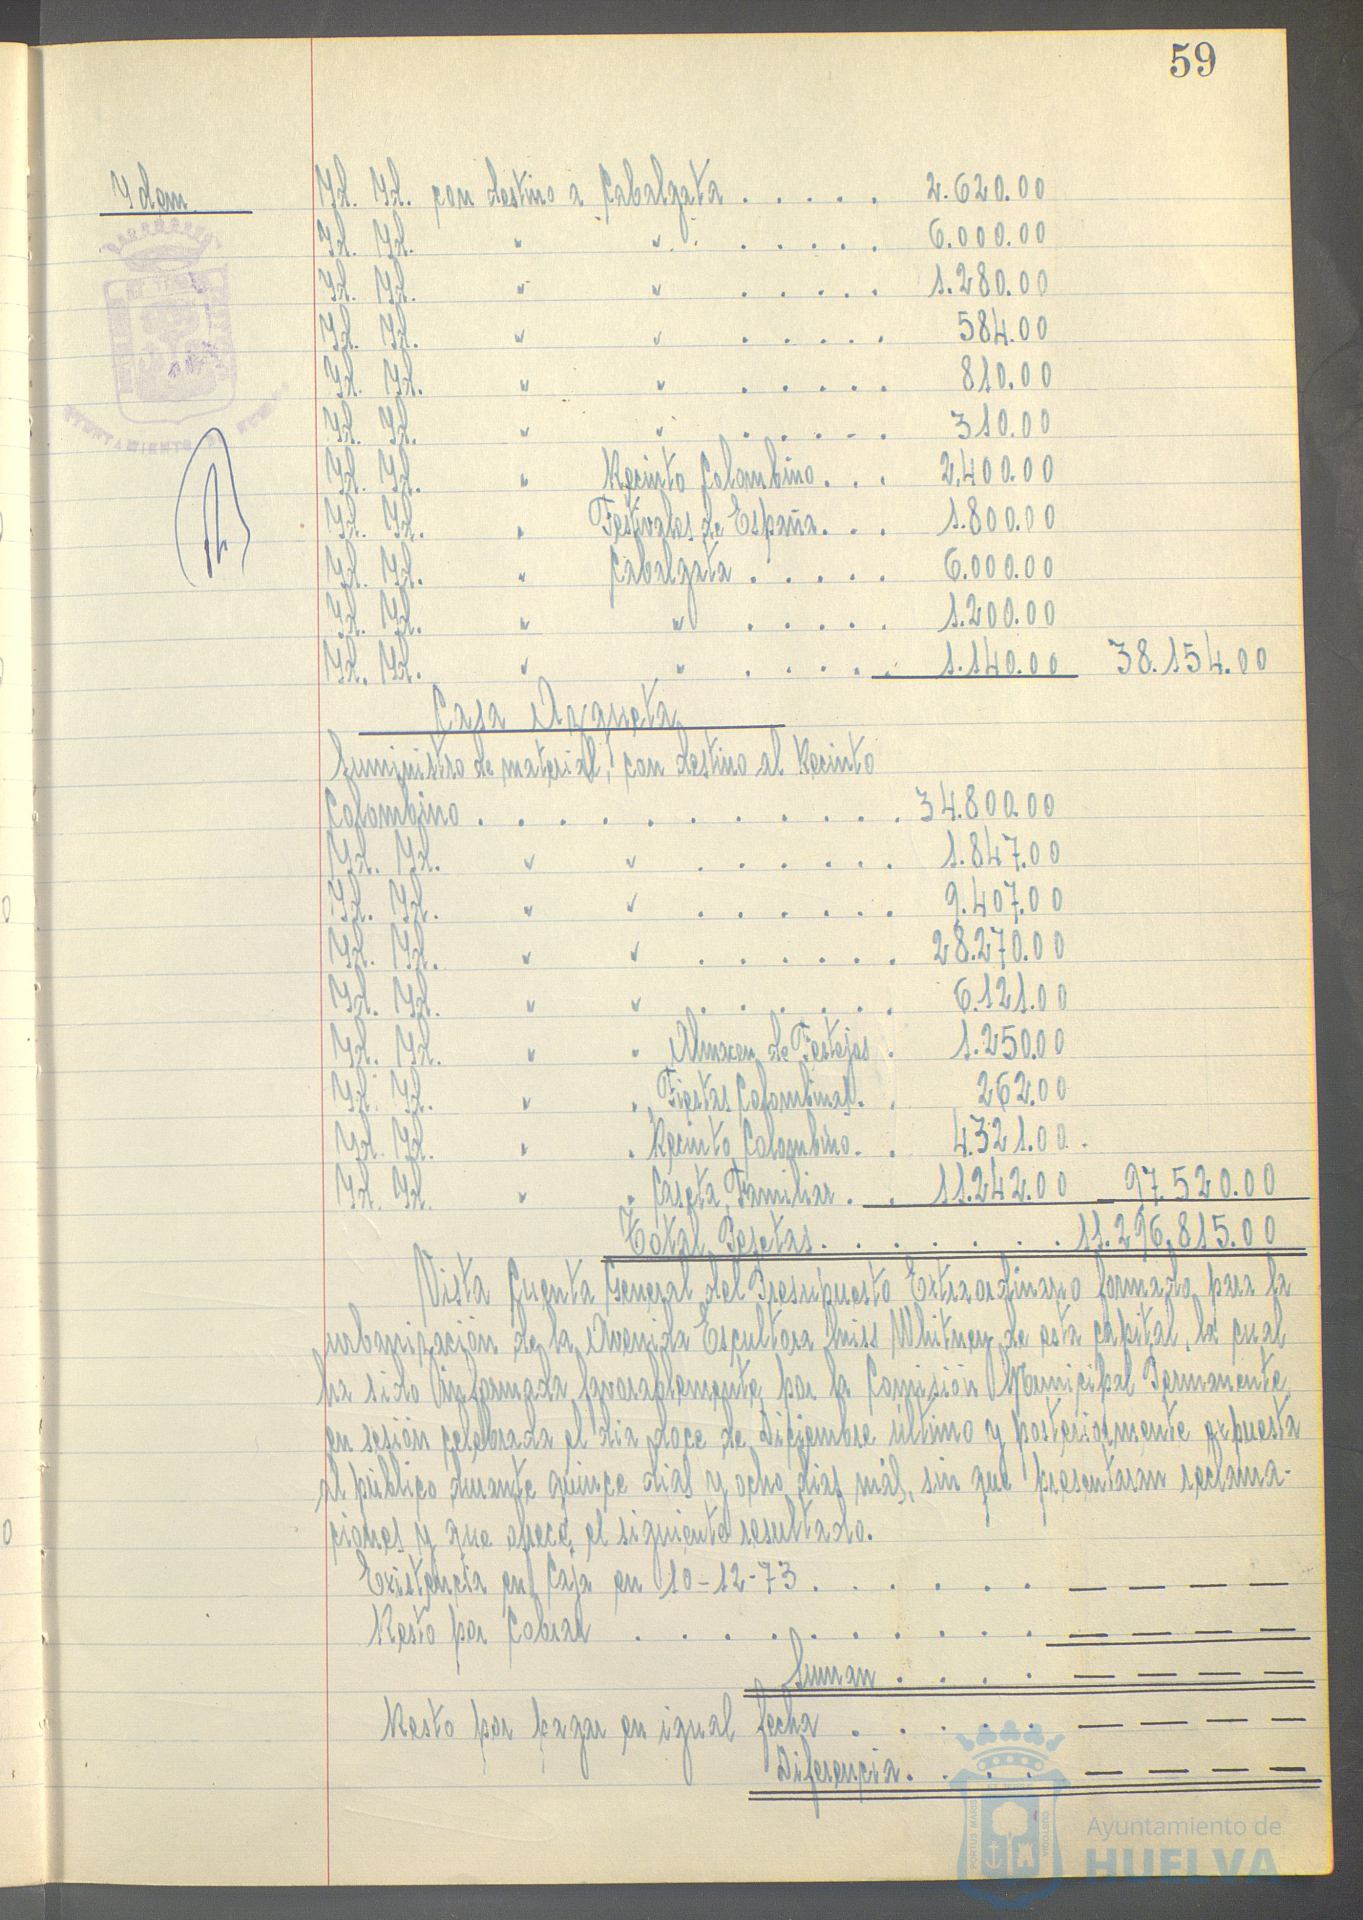 59
Ydem
Yd. Yd. con destino a Cabalgata . . . . . 2.620.00
Yd. Yd. " " . . . . . 6.000.00
Yd. Yd. " " . . . . . 1.280.00
Yd. Yd. " " . . . . . 584.00
Yd. Yd. " " . . . . . 810.00
Yd. Yd. " " . . . . . 310.00
Yd. Yd. " Recinto Colombino . . . 2.400.00
Yd. Yd. " Festivales de España . . . 1.800.00
Yd. Yd. " Cabalgata . . . . . 6.000.00
Yd. Yd. " " . . . . . 1.200.00
Yd. Yd. " " . . . . . 1.140.00 38.154.00
Casa Azqueta
Suministro de material, con destino al Recinto
Colombino . . . . . . . . . . . 34.800.00
Yd. Yd. " " . . . . . . 1.847.00
Yd. Yd. " " . . . . . . 9.407.00
Yd. Yd. " " . . . . . . 28.270.00
Yd. Yd. " " . . . . . . 6.121.00
Yd. Yd. " " Almacen de Festejos . 1.250.00
Yd. Yd. " " Fiestas Colombinas . . 262.00
Yd. Yd. " " Recinto Colombino . . 4.321.00
Yd. Yd. " " Caseta Familiar . . 11.242.00 97.520.00
Total Pesetas . . . . . . . 11.296.815.00
Vista Cuenta General del Presupuesto Extraordinario formado para la
urbanización de la Avenida Escultora Miss Whitney de esta capital, la cual
ha sido informada favorablemente por la Comisión Municipal Permanente
en sesión celebrada el dia doce de Diciembre último y posteriormente expuesta
al público durante quince dias y ocho dias más, sin que presentaran reclama-
ciones y que ofrece el siguiente resultado.
Existencia en Caja en 10-12-73 . . . . . . — — — —
Resto por Cobrar . . . . . . . . . . — — — —
Suman . . . . — — — —
Resto por pagar en igual fecha . . . . . — — — —
Diferencia . . . . — — — —
PORTUS MARIS
CUSTODIA
Ayuntamiento de
HUELVA